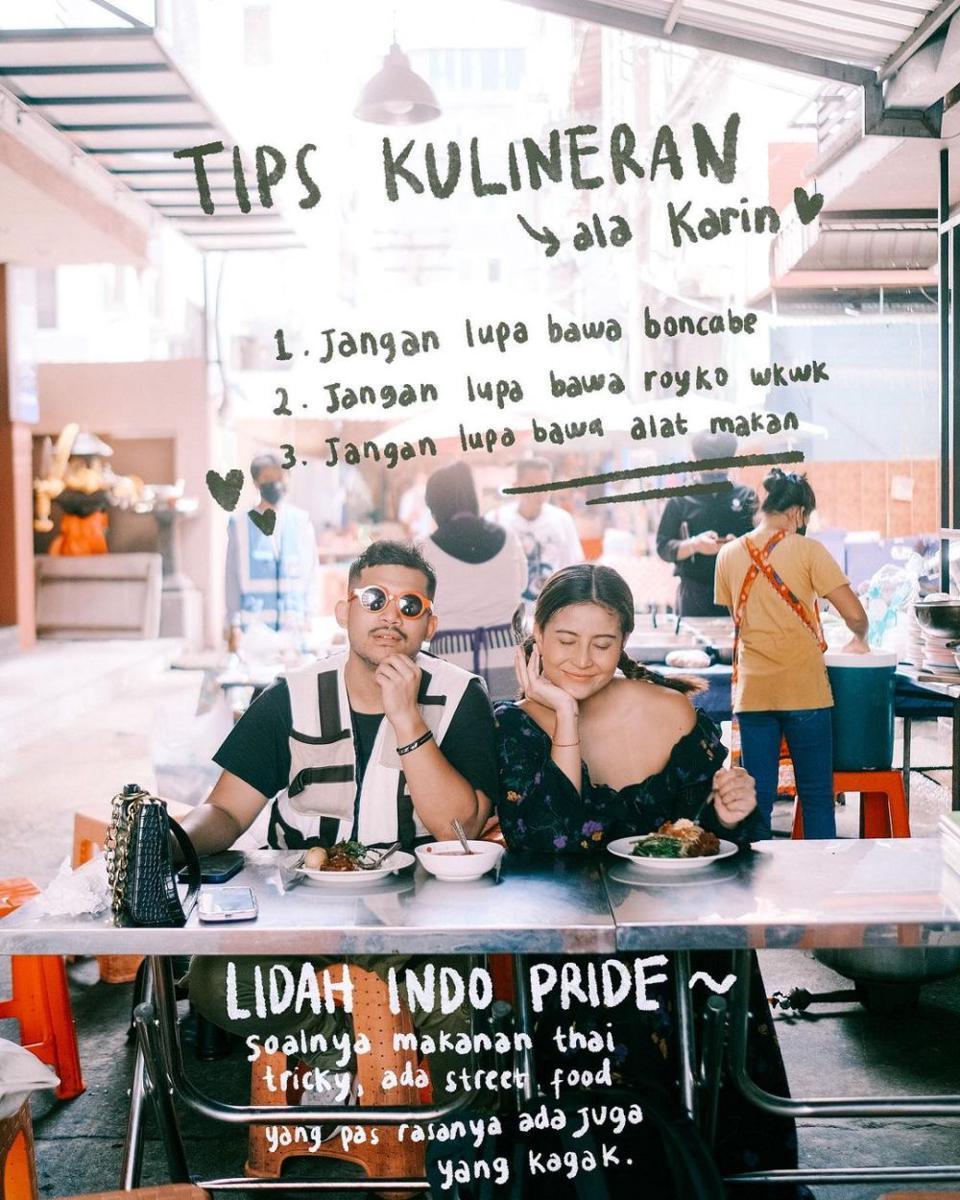 TIPS KULINERAN
ala Karin
1. Jangan lupa bawa boncabe
2. Jangan lupa bawa royko wkwk
3. Jangan lupa bawa alat makan
LIDAH INDO PRIDE ~
soalnya makanan thai
tricky, ada street food
yang pas rasanya ada juga
yang kagak.